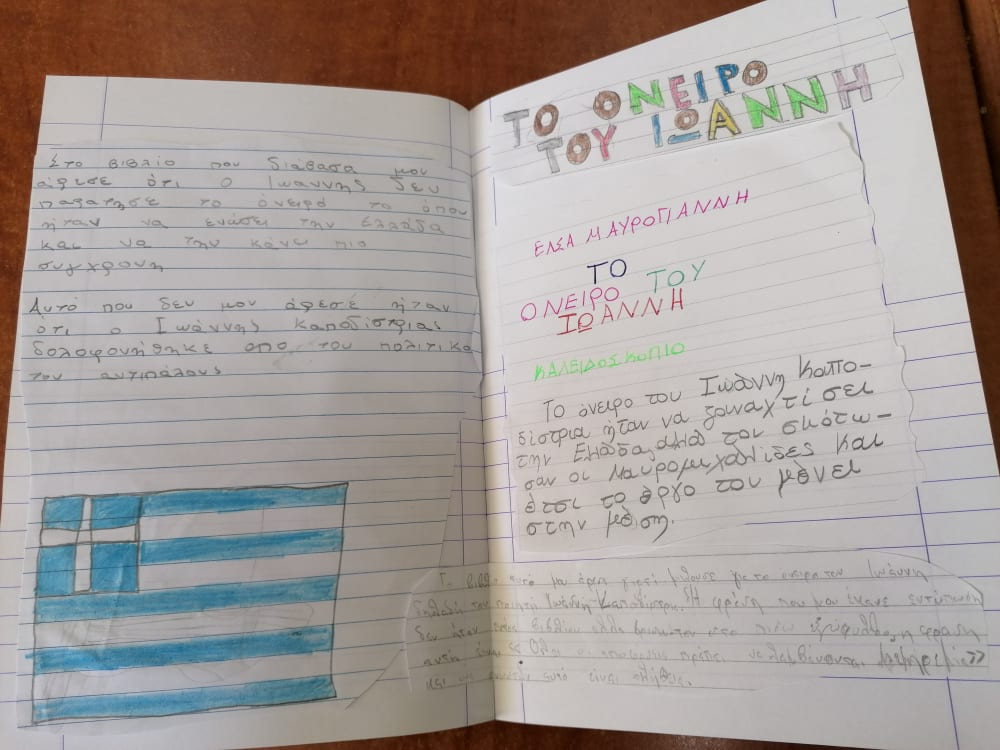 Στο βιβλίο που διάβασα μου
άρεσε ότι ο Ιωάννης δεν
παράτησε το όνειρό το όποιο
ήταν να ενώσει την Ελλάδα
και να την κάνω πιο
συγχρονη
Αυτό που δεν μου άρεσε ήταν
ότι ο Ιωάννης καποδίστριας
δολοφονήθηκε απο του πολιτικο
του αντιπάλους
ΤΟ ΟΝΕΙΡΟ
ΤΟΥ ΙΩΑΝΝΗ
ΕΛΣΑ ΜΑΥΡΟΓΙΑΝΝΗ
ΤΟ
ΟΝΕΙΡΟ ΤΟΥ
ΙΩΑΝΝΗ
ΚΑΛΕΙΔΟΣΚΟΠΙΟ
Το όνειρο του Ιωάννη Καπο-
δίστρια ήταν να ξαναχτίσει
την Ελλάδα, αλλά τον σκότω-
σαν οι Μαυρομιχαλίδες και
έτσι το έργο του μένει
στην μέση.
αυτό μου άρεσε γιατί με τα όνειρα του Ιωάννη
δηλαδή τον Ιωάννη Καποδίστρια. Η φράση που μου έκανε εντύπωση
δεν ήταν βιβλίου αλλά στο πίσω εξώφυλλο, η φράση
αυτή είναι << Όλοι οι πρέπει να λαμβάνονται >>
και αυτό είναι αλήθεια.